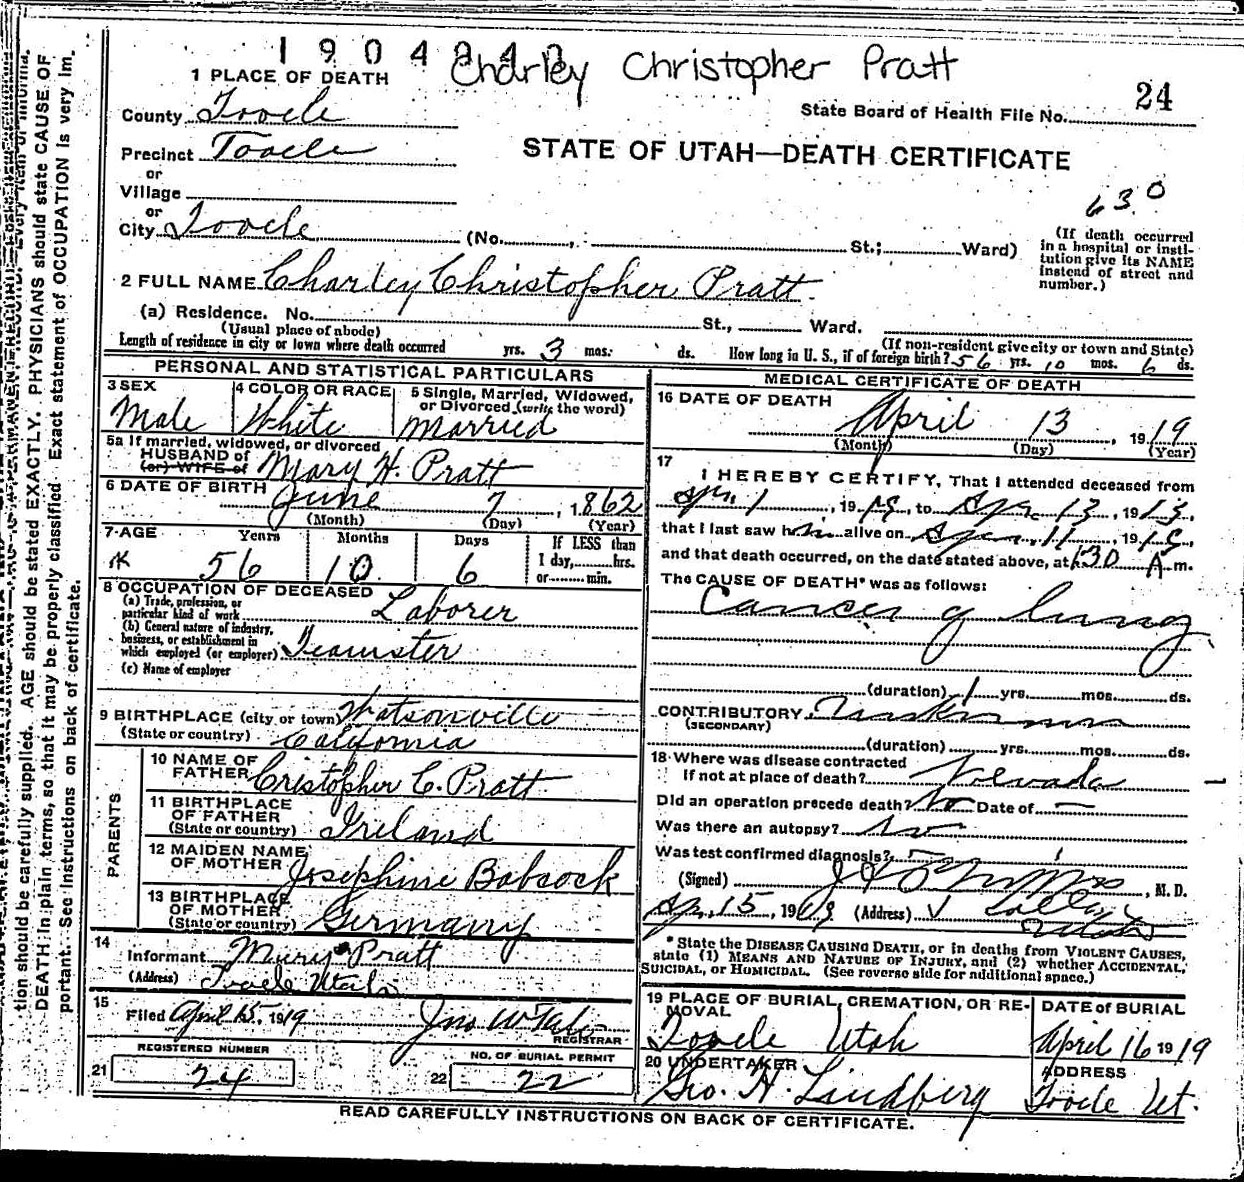 1904
Charley Christopher Pratt
1 PLACE OF DEATH
24
State Board of Health File No.
County Tooele
Precinct Tooele
STATE OF UTAH—DEATH CERTIFICATE
or
Village
630
or
City Tooele (No. , St.; Ward)
(If death occurred in a hospital or institution give its NAME instead of street and number.)
2 FULL NAME Charley Christopher Pratt
(a) Residence. No. St., Ward.
(Usual place of abode)
(If non-resident give city or town and State)
Length of residence in city or town where death occurred yrs. 3 mos. ds. How long in U. S., if of foreign birth? 56 yrs. 10 mos. 6 ds.
PERSONAL AND STATISTICAL PARTICULARS
3 SEX
Male
4 COLOR OR RACE
White
5 Single, Married, Widowed,
or Divorced (write the word)
Married
5a If married, widowed, or divorced
HUSBAND of
(or) WIFE of
Mary H. Pratt
6 DATE OF BIRTH June 7, 1862
(Month) (Day) (Year)
7-AGE Years Months Days
If LESS than
1 day, hrs.
or min.
56 10 6
8 OCCUPATION OF DECEASED
(a) Trade, profession, or
particular kind of work Laborer
(b) General nature of industry,
business, or establishment in
which employed (or employer) Teamster
(c) Name of employer
9 BIRTHPLACE (city or town) Watsonville
(State or country) California
PARENTS
10 NAME OF
FATHER Cristopher C. Pratt
11 BIRTHPLACE
OF FATHER
(State or country) Ireland
12 MAIDEN NAME
OF MOTHER Josephine Babcock
13 BIRTHPLACE
OF MOTHER
(State or country) Germany
14
Informant Mary Pratt
(Address) Tooele Utah
15
Filed April 15, 1919
REGISTRAR
REGISTERED NUMBER
21 24
NO. OF BURIAL PERMIT
22 22
MEDICAL CERTIFICATE OF DEATH
16 DATE OF DEATH
April 13, 1919
(Month) (Day) (Year)
17
I HEREBY CERTIFY, That I attended deceased from
Apr. 1, 19 , to Apr. 13, 19
that I last saw him alive on Apr. 11, 19
and that death occurred, on the date stated above, at 1:30 A m.
The CAUSE OF DEATH* was as follows:
Cancer of lung
(duration) 1 yrs. mos. ds.
CONTRIBUTORY
(SECONDARY)
(duration) yrs. mos. ds.
18 Where was disease contracted
if not at place of death? Nevada
Did an operation precede death? No Date of —
Was there an autopsy? No
Was test confirmed diagnosis? -
(Signed) , M. D.
Apr. 15, 19 (Address) Utah
* State the DISEASE CAUSING DEATH, or in deaths from VIOLENT CAUSES,
state (1) MEANS AND NATURE OF INJURY, and (2) whether ACCIDENTAL,
SUICIDAL, or HOMICIDAL. (See reverse side for additional space.)
19 PLACE OF BURIAL, CREMATION, OR RE-
MOVAL
Tooele Utah
DATE OF BURIAL
April 16 1919
20 UNDERTAKER
Geo. H. Lindberg
ADDRESS
Tooele Ut.
READ CAREFULLY INSTRUCTIONS ON BACK OF CERTIFICATE.
tion should be carefully supplied. AGE should be stated EXACTLY. PHYSICIANS should state CAUSE OF
DEATH in plain terms, so that it may be properly classified. Exact statement of OCCUPATION is very im-
portant. See instructions on back of certificate.